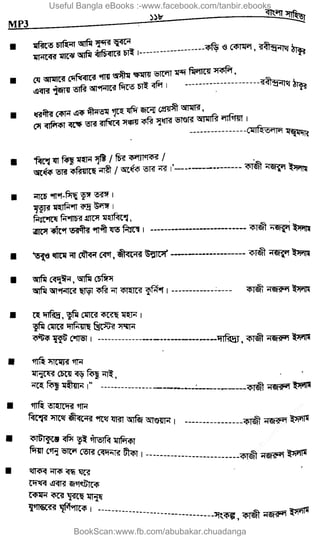 Useful Bangla eBooks :-www.facebook.com/tanbir.ebooks
MP3
১১৮
বাংলা সাহিত্য
মরিতে চাহিনা আমি সুন্দর ভুবনে
মানবের মাঝে আমি বাঁচিবারে চাই। ---কড়ি ও কোমল, রবীন্দ্রনাথ ঠাকুর
যে আমারে দেখিবারে পায় অসীম ক্ষমায় ভালো মন্দ মিলায়ে সকলি,
এবার পূজায় তারি আপনারে দিতে চাই বলি। ---রবীন্দ্রনাথ ঠাকুর
ধরণীর কোন এক দীনতম গৃহে যদি জন্মে প্রেয়সী আমার,
সে বালিকা বক্ষে তার রাখিবে সঞ্চয় করি সুধার ভাণ্ডার আমারি লাগিয়া।
---মোহিতলাল মজুমদার
'বিশ্বে যা কিছু মহান সৃষ্টি / চির কল্যাণকর /
অর্ধেক তার করিয়াছে নারী / অর্ধেক তার নর।' --- কাজী নজরুল ইসলাম
নাচে পাপ-সিন্ধু তুঙ্গ তরঙ্গ।
মৃত্যুর মহানিশা রুদ্র উলঙ্গ।
নিঃশেষে নিশাচর গ্রাসে মহাবিশ্বে,
ত্রাসে কাঁপে তরণীর পাপী যত নিঃস্বে। --- কাজী নজরুল ইসলাম
'তবুও থামে না যৌবন বেগ, জীবনের উল্লাসে' --- কাজী নজরুল ইসলাম
আমি বেদুঈন, আমি চেঙ্গিস
আমি আপনারে ছাড়া করি না কাহারে কুর্নিশ। --- কাজী নজরুল ইসলাম
হে দারিদ্র, তুমি মোরে করেছ মহান।
তুমি মোরে দানিয়াছ খ্রিস্টের সম্মান
কণ্টক মুকুট শোভা। ---দারিদ্র্য, কাজী নজরুল ইসলাম
গাহি সাম্যের গান
মানুষের চেয়ে বড় কিছু নাই,
নহে কিছু মহীয়ান।" ---কাজী নজরুল ইসলাম
গাহি তাহাদের গান
বিশ্বের সাথে জীবনের পথে যারা আজি আগুয়ান। ---কাজী নজরুল ইসলাম
কাটাকুঞ্জে বসি তুই গাঁথবি মালিকা
দিয়া গেনু ভালে তোর বেদনার টীকা। ---কাজী নজরুল ইসলাম
থাকব নাক বদ্ধ ঘরে
দেখব এবার জগৎটাকে
কেমন করে ঘুরছে মানুষ
যুগান্তরের ঘূর্ণিপাকে। ---সংকল্প, কাজী নজরুল ইসলাম
BookScan:www.fb.com/abubakar.chuadanga